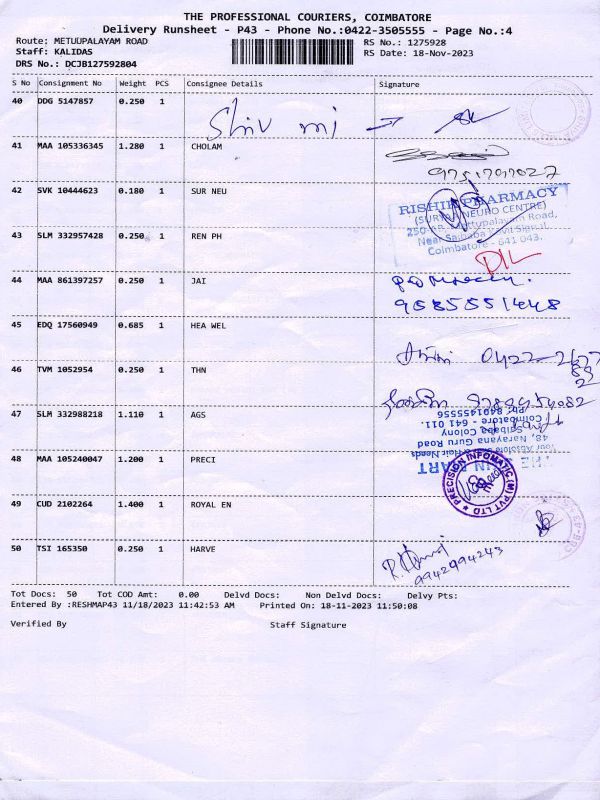 THE PROFESSIONAL COURIERS, COIMBATORE
Delivery Runsheet - P43 - Phone No.:0422-3505555 - Page No.:4
Route: METUUPALAYAM ROAD
RS No.: 1275928
Staff: KALIDAS
RS Date: 18-Nov-2023
DRS No.: DCJB127592804
S No Consignment No Weight PCS Consignee Details Signature
40 DDG 5147857 0.250 1
Shiv
41 MAA 105336345 1.280 1 CHOLAM
42 SVK 10444623 0.180 1 SUR NEU
RISHI PHARMACY
(SURYA NEURO CENTRE)
43 SLM 332957428 0.250 1 REN PH
Coimbatore - 641 043.
44 MAA 861397257 0.250 1 JAI
9585551448
45 EDQ 17560949 0.685 1 HEA WEL
46 TVM 1052954 0.250 1 THN
47 SLM 332988218 1.110 1 AGS
Ph: 8401455556
Coimbatore - 641 011.
Saibaba Colony
48, Narayana Guru Road
48 MAA 105240047 1.200 1 PRECI
PRECISION INFOMATIC (M) PVT LTD
49 CUD 2102264 1.400 1 ROYAL EN
50 TSI 165350 0.250 1 HARVE
9942994243
Tot Docs: 50 Tot COD Amt: 0.00 Delvd Docs: Non Delvd Docs: Delvy Pts:
Entered By :RESHMAP43 11/18/2023 11:42:53 AM Printed On: 18-11-2023 11:50:08
Verified By Staff Signature